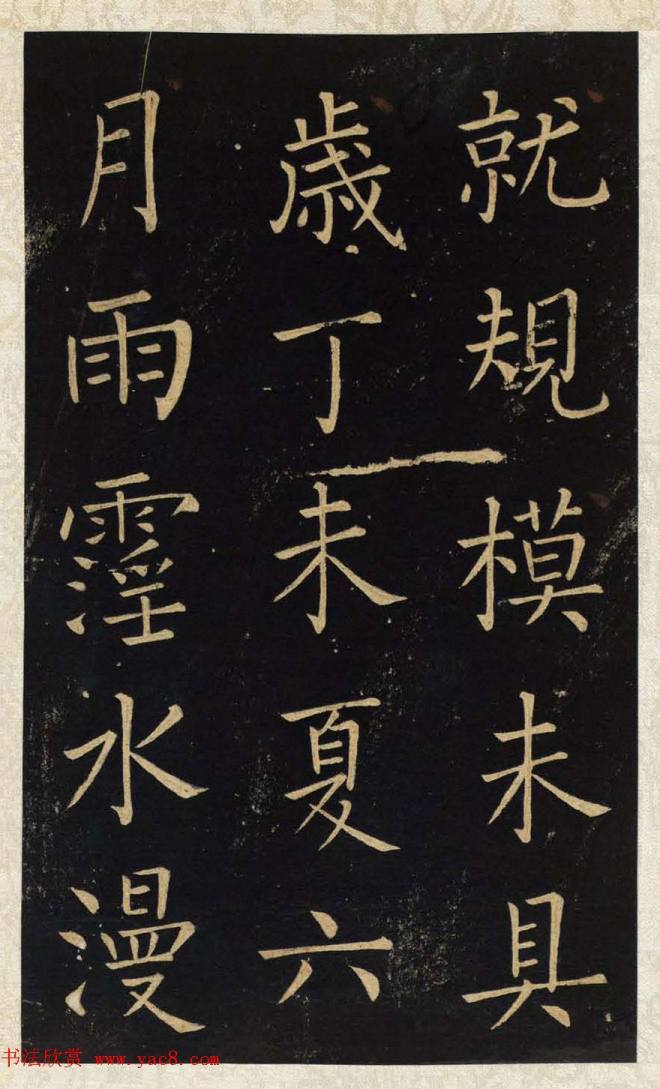 就規模未具
歲丁未夏六
月雨霪水漫
书法欣赏 www.yac8.com